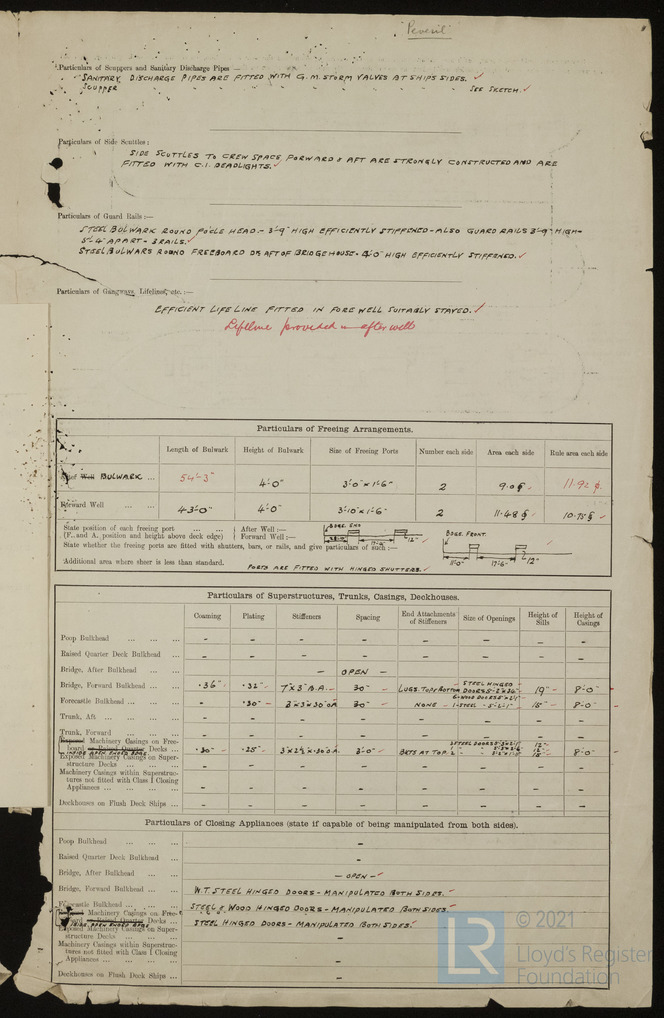 "Peveril"
Particulars of Scuppers and Sanitary Discharge Pipes —
SANITARY DISCHARGE PIPES ARE FITTED WITH G.M. STORM VALVES AT SHIPS SIDES. ✓
SCUPPER " " " " " " " " SEE SKETCH. ✓
Particulars of Side Scuttles:
SIDE SCUTTLES TO CREW SPACE, FORWARD & AFT ARE STRONGLY CONSTRUCTED AND ARE
FITTED WITH C.I. DEADLIGHTS. ✓
Particulars of Guard Rails:—
STEEL BULWARK ROUND FOCLE HEAD - 3'-9" HIGH EFFICIENTLY STIFFENED - ALSO GUARD RAILS 3'-9" HIGH -
5'-4" APART - 3 RAILS. ✓
STEEL BULWARS ROUND FREEBOARD DK AFT OF BRIDGEHOUSE - 4'-0" HIGH EFFICIENTLY STIFFENED. ✓
Particulars of Gangways, Lifelines, etc.:—
EFFICIENT LIFE LINE FITTED IN FORE WELL SUITABLY STAYED. ✓
Lifeline provided in after well
Particulars of Freeing Arrangements.
Length of Bulwark Height of Bulwark Size of Freeing Ports Number each side Area each side Rule area each side
After Well BULWARK ... 54'-3" 4'-0" 3'-0" x 1'-6" 2 9.0 11.92
Forward Well ... ... 43'-0" 4'-0" 3'-10" x 1'-6" 2 11.48 10.75
State position of each freeing port ... ... } After Well:— BDGE. END
(F. and A. position and height above deck edge) } Forward Well:— 12" BDGE. FRONT.
State whether the freeing ports are fitted with shutters, bars, or rails, and give particulars of such:—
11'-0" 17'-6" 12"
Additional area where sheer is less than standard.
PORTS ARE FITTED WITH HINGED SHUTTERS. ✓
Particulars of Superstructures, Trunks, Casings, Deckhouses.
Coaming Plating Stiffeners Spacing End Attachments of Stiffeners Size of Openings Height of Sills Height of Casings
Poop Bulkhead ... ... ... - - - - - - - -
Raised Quarter Deck Bulkhead ... - - - - - - - -
Bridge, After Bulkhead ... ... — OPEN —
Bridge, Forward Bulkhead ... ... .36" .32" 7" x 3" B.A. 30" LUGS TOP & BOTTOM STEEL HINGED DOORS 19" 8'-0"
Forecastle Bulkhead ... ... - .30" 3 x 3 x .30 O.A. 30" NONE 1-STEEL - 5'-2'-1" 15" 8'-0"
Trunk, Aft ... ... ... - - - - - - - -
Trunk, Forward ... ... ... - - - - - - - -
Exposed Machinery Casings on Freeboard or Raised Quarter Decks ... .30" .25" 3 x 2½ x .30 O.A. 3'-0" BKTS AT TOP. 8'-0"
INSIDE OPEN ENDED BDGE
Exposed Machinery Casings on Superstructure Decks ... ...
Machinery Casings within Superstructures not fitted with Class I Closing Appliances ... ... - - - - - - - -
Deckhouses on Flush Deck Ships ... - - - - - - - -
Particulars of Closing Appliances (state if capable of being manipulated from both sides).
Poop Bulkhead ... ... ... -
Raised Quarter Deck Bulkhead ... -
Bridge, After Bulkhead ... ... — OPEN — ✓
Bridge, Forward Bulkhead ... ... W.T. STEEL HINGED DOORS - MANIPULATED BOTH SIDES. ✓
Forecastle Bulkhead ... ... STEEL & WOOD HINGED DOORS - MANIPULATED BOTH SIDES. ✓
Exposed Machinery Casings on Freeboard or Raised Quarter Decks ... STEEL HINGED DOORS - MANIPULATED BOTH SIDES. ✓
INSIDE OPEN ENDED BDGE
Exposed Machinery Casings on Superstructure Decks ... ... -
Machinery Casings within Superstructures not fitted with Class I Closing Appliances ... ... -
Deckhouses on Flush Deck Ships ... -
LR
© 2021
Lloyd's Register
Foundation